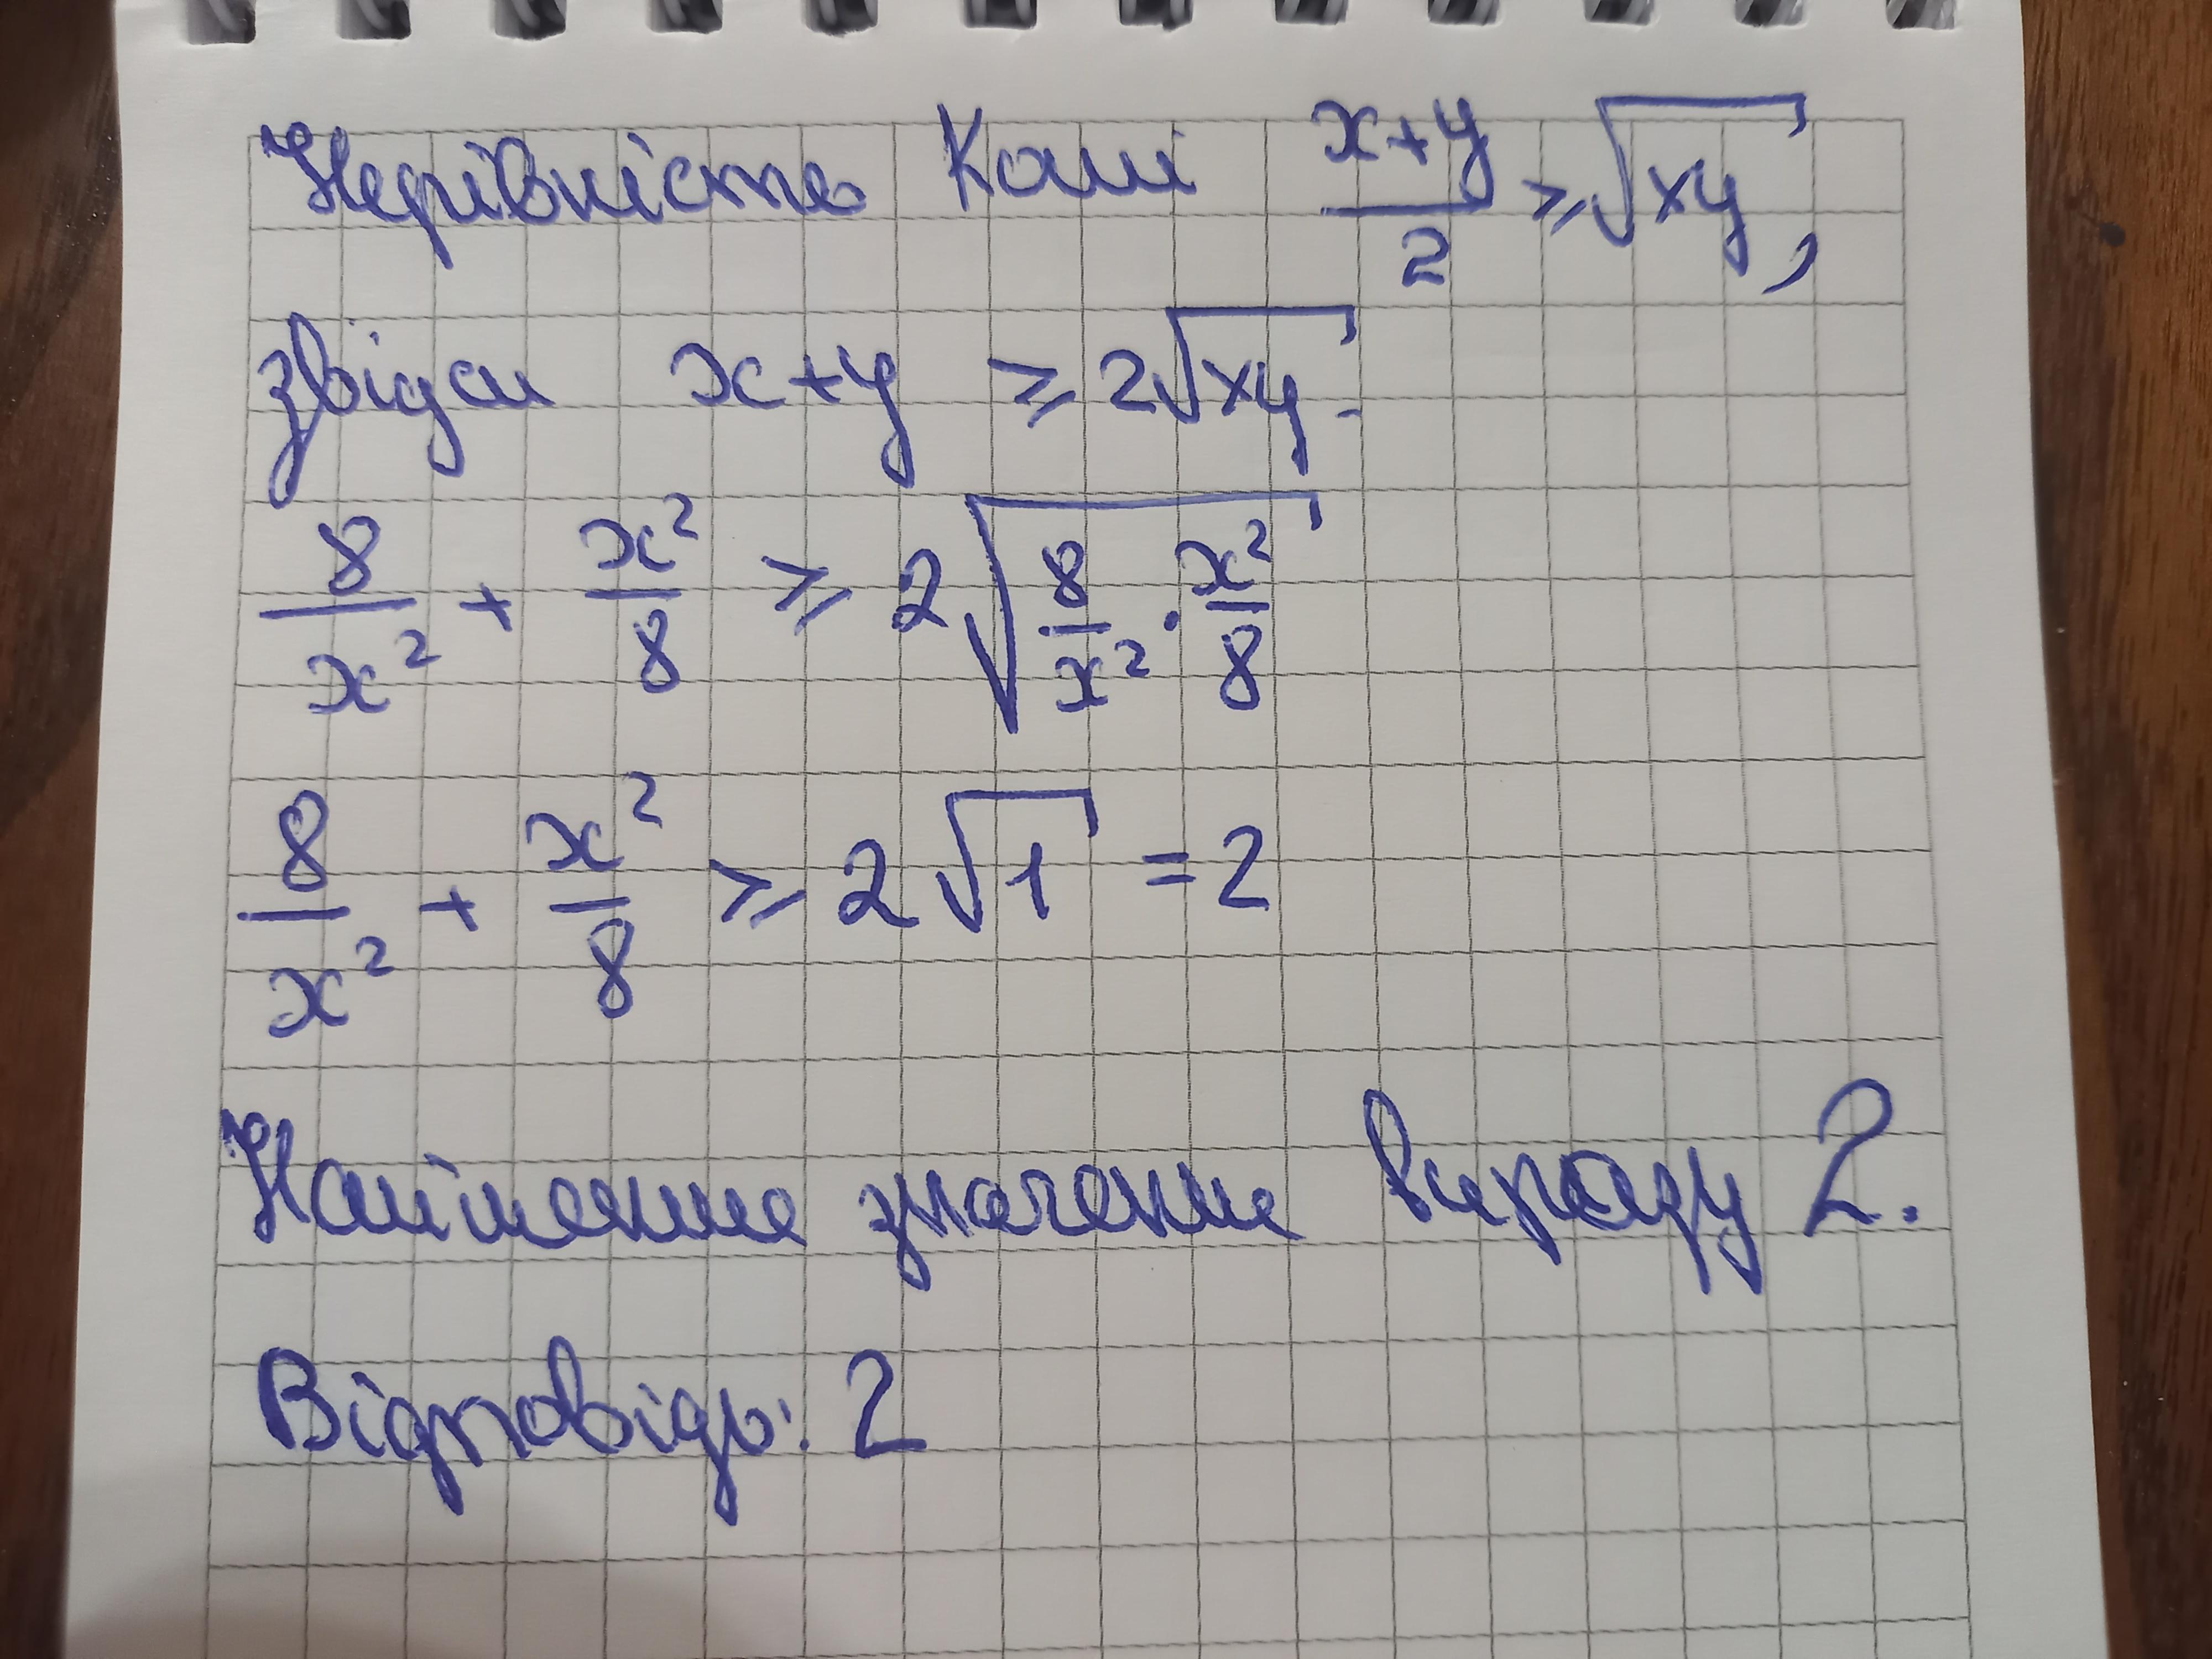 Нерівність Коші (x+y)/2 ≥ √(xy),
звідси x+y ≥ 2√(xy).
8/x² + x²/8 ≥ 2√(8/x² · x²/8)
8/x² + x²/8 ≥ 2√1 = 2
Найменше значення виразу 2.
Відповідь: 2